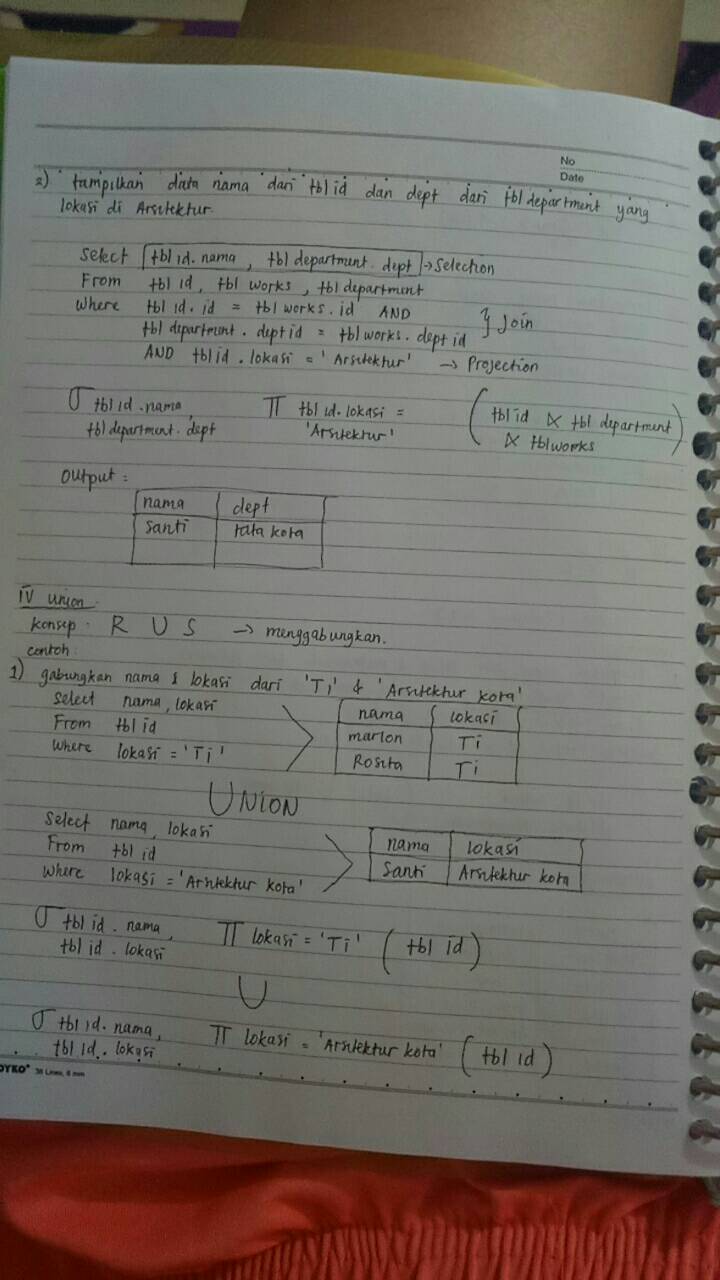 No
Date
2) tampilkan data nama dari tbl id dan dept dari tbl department yang
lokasi di Arsitektur.
Select tbl id.nama, tbl department.dept → Selection
From tbl id, tbl works, tbl department
Where tbl id.id = tbl works.id AND
tbl department.dept id = tbl works.dept id } Join
AND tbl id.lokasi = 'Arsitektur' → Projection
σ tbl id.nama, π tbl id.lokasi = (tbl id ⋈ tbl department
tbl department.dept 'Arsitektur' ⋈ tbl works)
Output =
nama dept
Santi tata kota
IV Union.
Konsep : R U S → menggabungkan.
contoh :
1) gabungkan nama & lokasi dari 'Ti' & 'Arsitektur kota'
Select nama, lokasi
From tbl id
Where lokasi = 'Ti'
nama lokasi
marlon Ti
Rosita Ti
UNION
Select nama, lokasi
From tbl id
Where lokasi = 'Arsitektur kota'
nama lokasi
Santi Arsitektur kota
σ tbl id.nama, π lokasi = 'Ti' (tbl id)
tbl id.lokasi
U
σ tbl id.nama, π lokasi = 'Arsitektur kota' (tbl id)
tbl id.lokasi
38 Lines, 8 mm